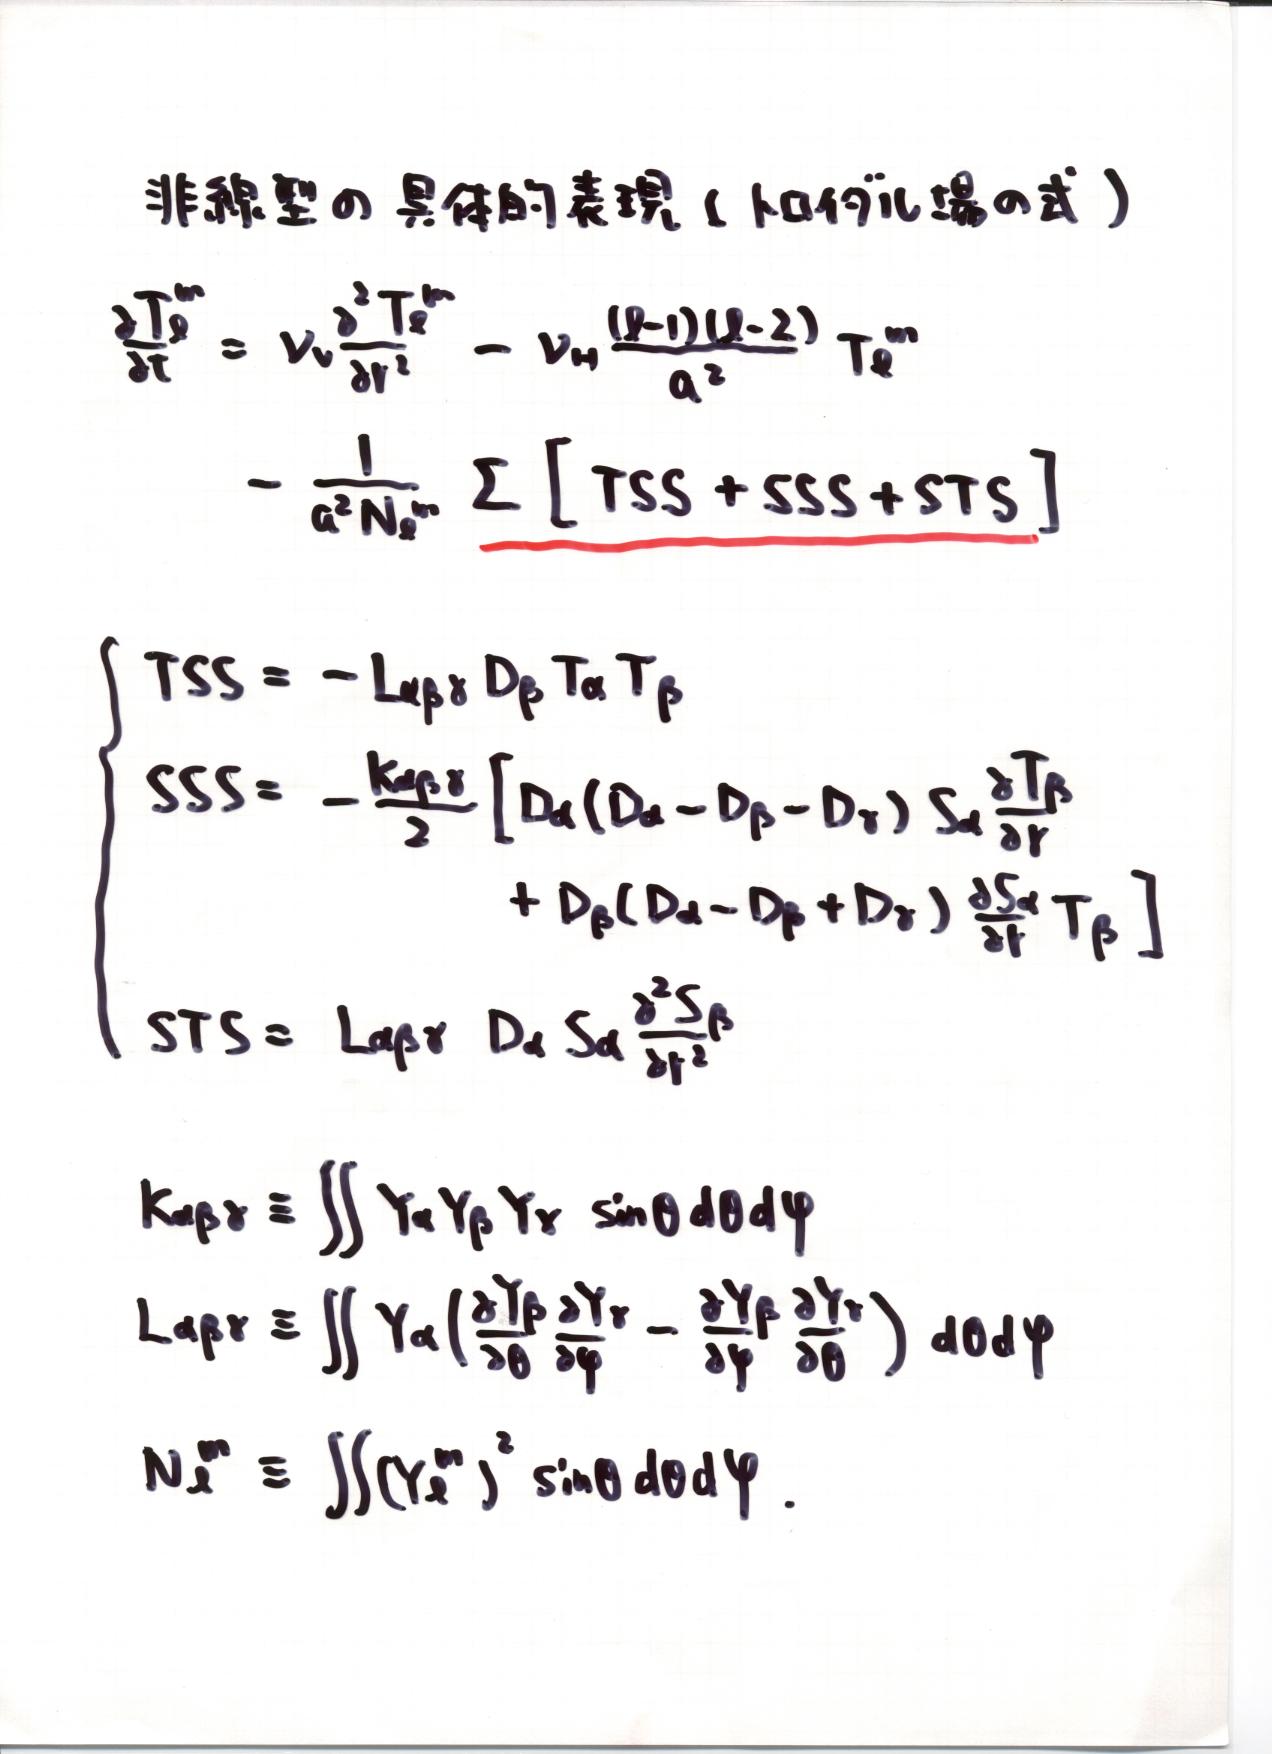 非線型の具体的表現 (トロイダル場の式)
∂Tₗᵐ/∂t = νᵥ ∂²Tₗᵐ/∂r² - ν_H (l-1)(l-2)/a² Tₗᵐ
- 1/(a² Nₗᵐ) Σ [ TSS + SSS + STS ]
TSS = - Lαβγ Dβ Tα Tβ
SSS = - Kαβγ/2 [ Dα (Dα - Dβ - Dγ) Sα ∂Tβ/∂r
+ Dβ (Dα - Dβ + Dγ) ∂Sα/∂r Tβ ]
STS = Lαβγ Dα Sα ∂²Sβ/∂r²
Kαβγ ≡ ∬ Yα Yβ Yγ sinθ dθ dφ
Lαβγ ≡ ∬ Yα ( ∂Yβ/∂θ ∂Yγ/∂φ - ∂Yβ/∂φ ∂Yγ/∂θ ) dθ dφ
Nₗᵐ ≡ ∬ (Yₗᵐ)² sinθ dθ dφ .